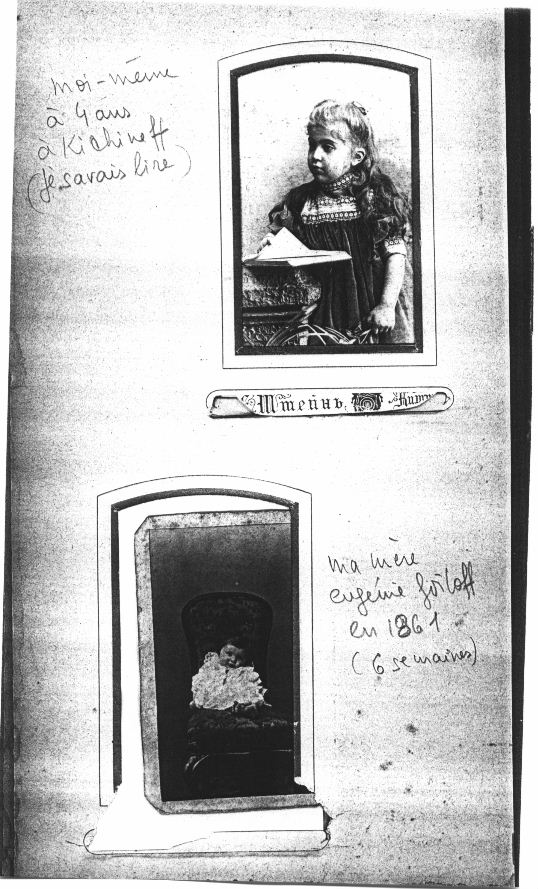 moi-même
à 4 ans
à Kichineff
(Je savais lire)
Штейнъ.
ma mère
eugénie
en 1861
(6 semaines)